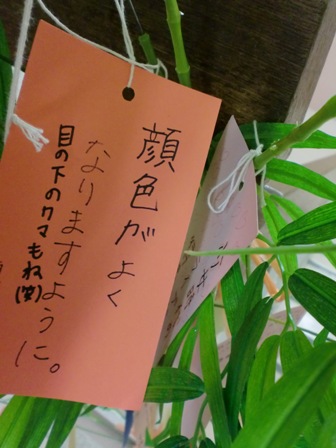 顔色がよく
なりますように。
目の下のクマもね(笑)